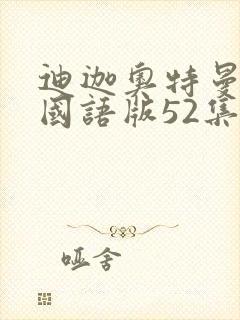 迪迦奥特曼
國語版52集
哑舍